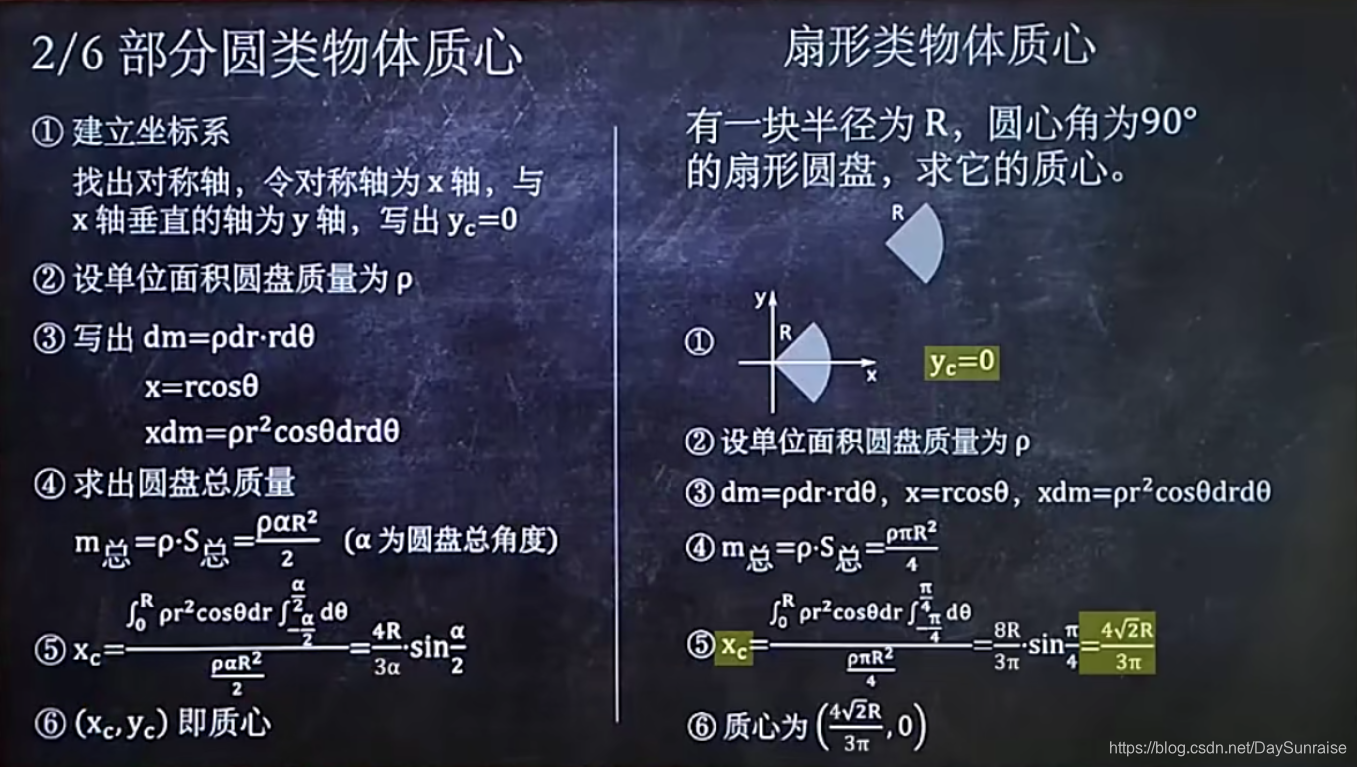 2/6 部分圆类物体质心
① 建立坐标系
找出对称轴，令对称轴为 x 轴，与
x 轴垂直的轴为 y 轴，写出 y_c=0
② 设单位面积圆盘质量为 ρ
③ 写出 dm=ρdr·rdθ
x=rcosθ
xdm=ρr²cosθdrdθ
④ 求出圆盘总质量
m_总=ρ·S_总=\frac{ραR²}{2} (α 为圆盘总角度)
⑤ x_c=\frac{∫_0^R ρr²cosθdr ∫_{-\frac{α}{2}}^{\frac{α}{2}} dθ}{\frac{ραR²}{2}}=\frac{4R}{3α}·sin\frac{α}{2}
⑥ (x_c,y_c) 即质心
扇形类物体质心
有一块半径为 R，圆心角为90°
的扇形圆盘，求它的质心。
R
①
y
R
x
y_c=0
② 设单位面积圆盘质量为 ρ
③ dm=ρdr·rdθ，x=rcosθ，xdm=ρr²cosθdrdθ
④ m_总=ρ·S_总=\frac{ρπR²}{4}
⑤ x_c=\frac{∫_0^R ρr²cosθdr ∫_{-\frac{π}{4}}^{\frac{π}{4}} dθ}{\frac{ρπR²}{4}}=\frac{8R}{3π}·sin\frac{π}{4}=\frac{4√2R}{3π}
⑥ 质心为 (\frac{4√2R}{3π},0)
https://blog.csdn.net/DaySunraise